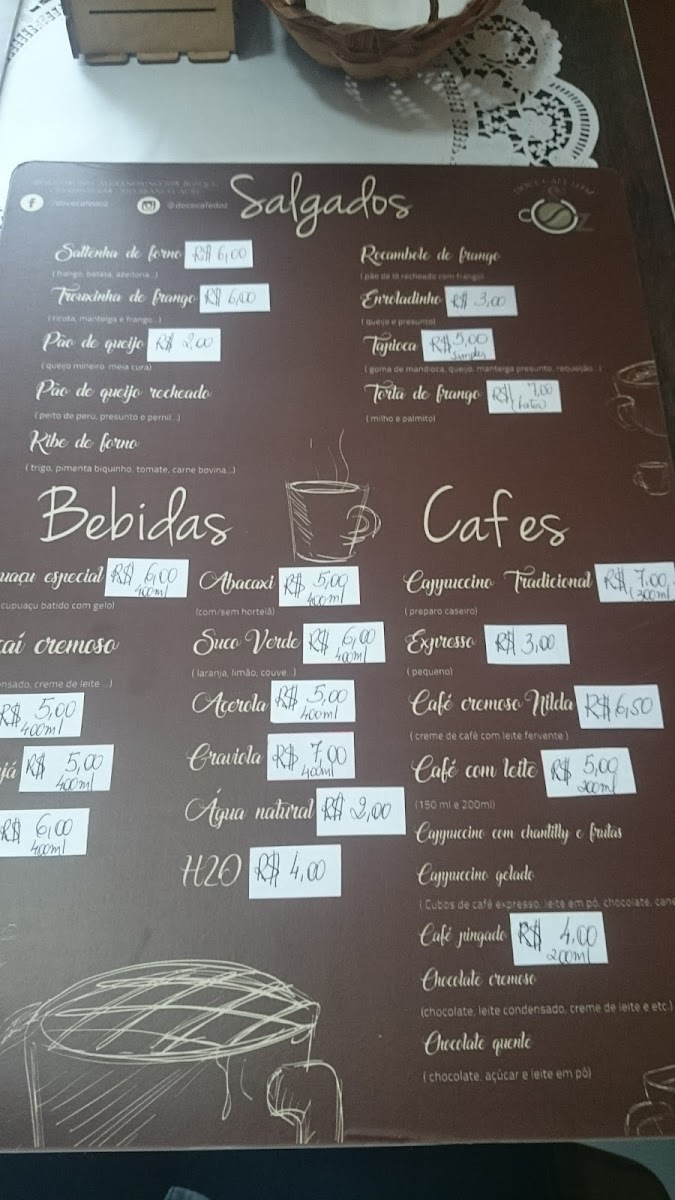 Salgados
/docecafedoz
@docecafedoz
Saltenha de forno R$ 6,00
(frango, batata, azeitona...)
Trouxinha de frango R$ 6,00
(ricota, manteiga e frango...)
Pão de queijo R$ 2,00
(queijo mineiro meia cura)
Pão de queijo recheado
(peito de peru, presunto e pernil...)
Kibe de forno
(trigo, pimenta biquinho, tomate, carne bovina...)
Rocambole de frango
(pão de ló recheado com frango)
Enroladinho R$ 3,00
(queijo e presunto)
Tapioca R$ 5,00
simples
(goma de mandioca, queijo, manteiga presunto, requeijão...)
Torta de frango R$ 7,00
(fatia)
(milho e palmito)
Bebidas
uaçu especial R$ 6,00
400ml
cupuaçu batido com gelo)
aí cremoso
ensado, creme de leite ...)
R$ 5,00
400ml
já R$ 5,00
400ml
R$ 6,00
400ml
Abacaxi R$ 5,00
400ml
(com/sem hortelã)
Suco Verde R$ 6,00
400ml
(laranja, limão, couve...)
Acerola R$ 5,00
400ml
Graviola R$ 7,00
400ml
Água natural R$ 2,00
H2O R$ 4,00
Cafes
Cappuccino Tradicional R$ 7,00
(200ml
(preparo caseiro)
Expresso R$ 3,00
(pequeno)
Café cremoso Nilda R$ 6,50
(creme de café com leite fervente)
Café com leite R$ 5,00
200ml
(150 ml e 200ml)
Cappuccino com chantilly e frutas
Cappuccino gelado
(Cubos de café expresso, leite em pó, chocolate, cane
Café pingado R$ 4,00
200ml
Chocolate cremoso
(chocolate, leite condensado, creme de leite e etc.)
Chocolate quente
(chocolate, açúcar e leite em pó)